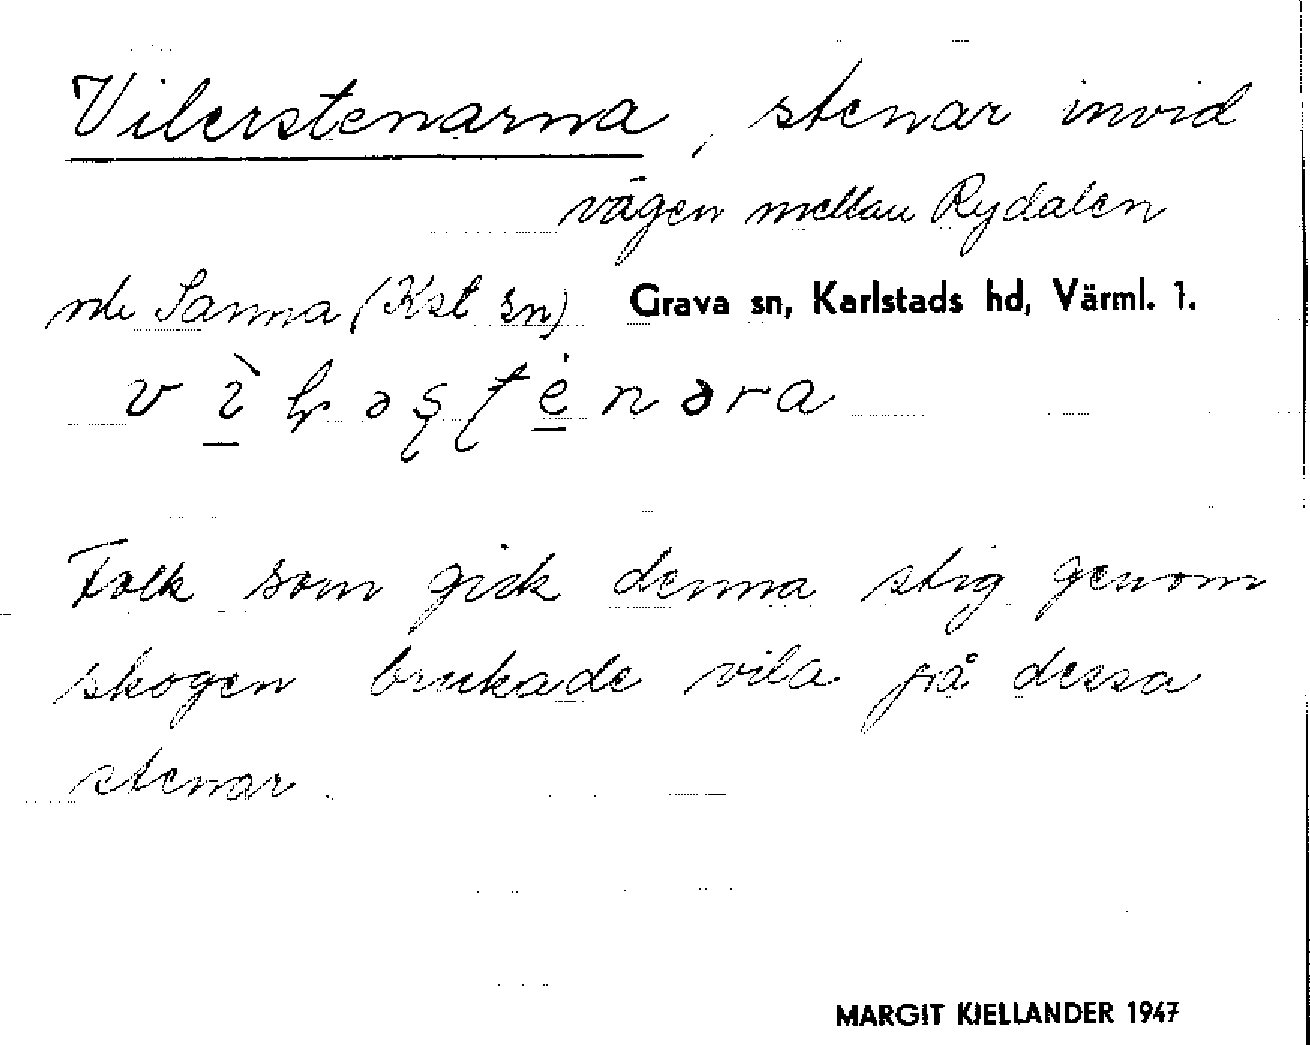 Vilerstenarna, stenar invid
vägen mellan Rydalen
Sanna (Kst sn) Grava sn, Karlstads hd, Värml. 1.
Folk som gick denna stig genom
skogen brukade vila på dessa
stenar.
MARGIT KJELLANDER 1947